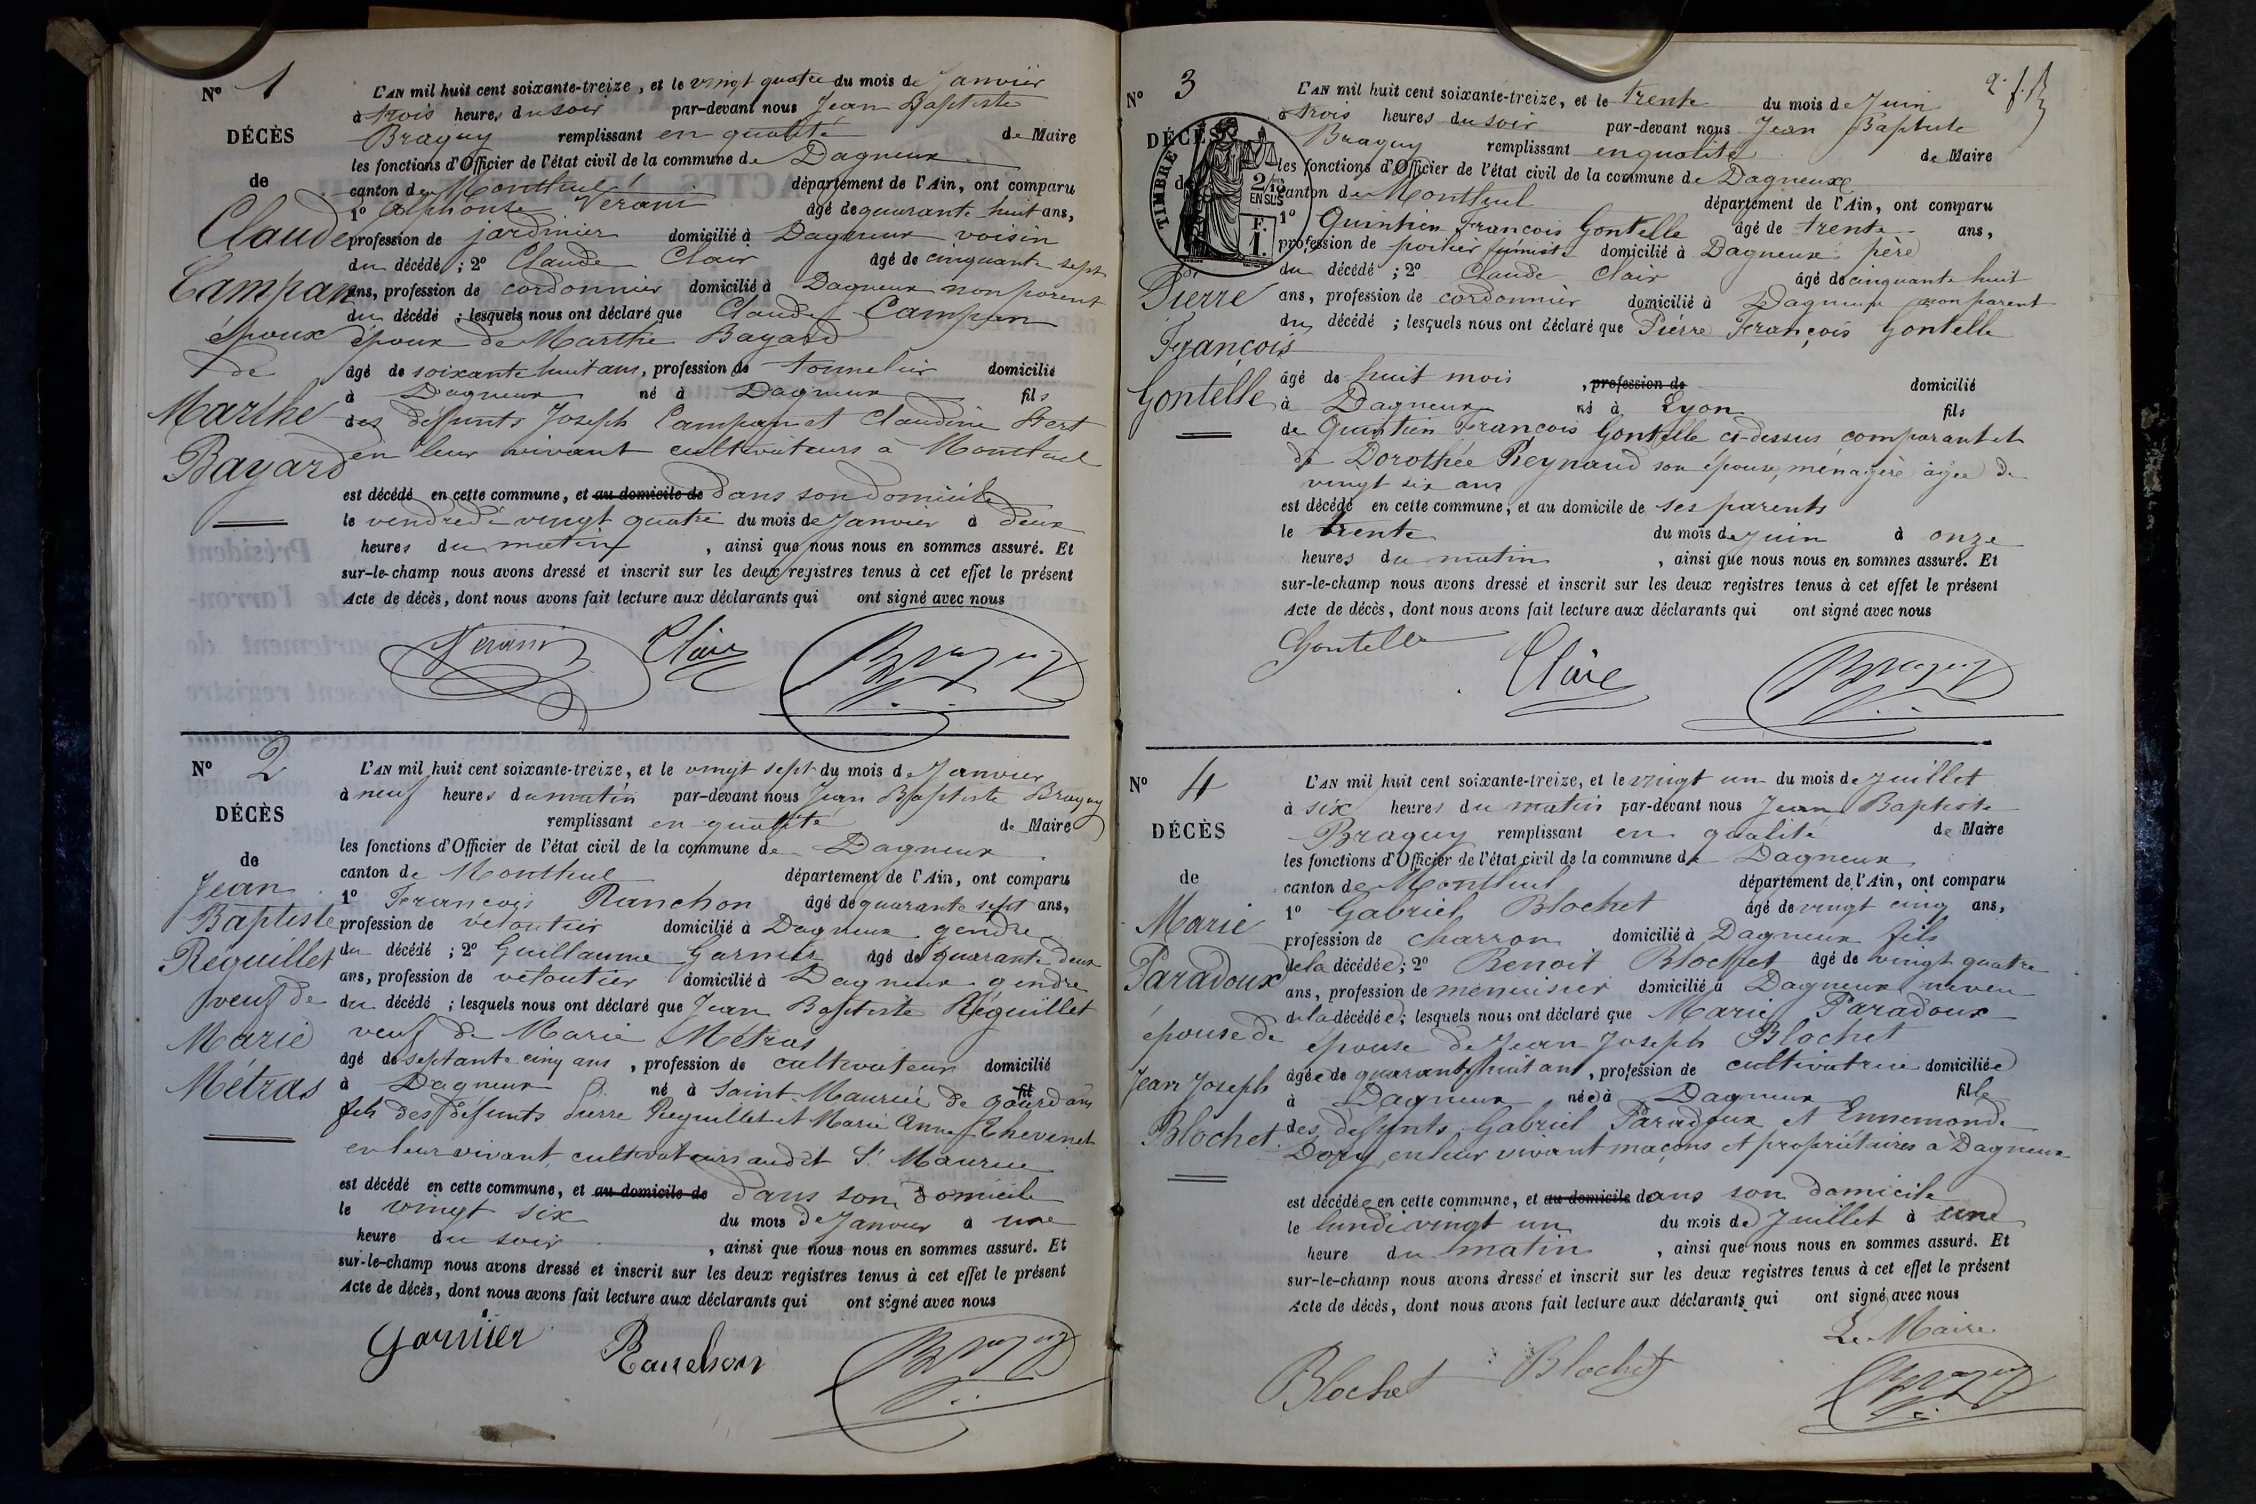 N° 1
DÉCÈS
de
Claude
Campan
époux
de
Marthe
Bayard
L'AN mil huit cent soixante-treize, et le vingt quatre du mois de Janvier
à trois heures du soir par-devant nous Jean Baptiste
Braguy remplissant en qualité de Maire
les fonctions d'Officier de l'état civil de la commune de Dagneux
canton de Montluel département de l'Ain, ont comparu
1° Alphonse Verani âgé de quarante huit ans,
profession de jardinier domicilié à Dagneux voisin
du décédé ; 2° Claude Clair âgé de cinquante sept
ans, profession de cordonnier domicilié à Dagneux non parent
du décédé ; lesquels nous ont déclaré que Claude Campan
époux de Marthe Bayard
âgé de soixante huit ans, profession de tonnelier domicilié
à Dagneux né à Dagneux fils
des défunts Joseph Campan et Claudine
en leur vivant cultivateurs à Montluel
est décédé en cette commune, et au domicile de dans son domicile
le vendredi vingt quatre du mois de Janvier à deux
heures du matin, ainsi que nous nous en sommes assuré. Et
sur-le-champ nous avons dressé et inscrit sur les deux registres tenus à cet effet le présent
Acte de décès, dont nous avons fait lecture aux déclarants qui ont signé avec nous
Verani Clair Braguy
N° 2
DÉCÈS
de
Jean
Baptiste
Réguillet
veuf de
Marie
Métras
L'AN mil huit cent soixante-treize, et le vingt sept du mois de Janvier
à neuf heures du matin par-devant nous Jean Baptiste Braguy
remplissant en qualité de Maire
les fonctions d'Officier de l'état civil de la commune de Dagneux
canton de Montluel département de l'Ain, ont comparu
1° François Ranchon âgé de quarante sept ans,
profession de vetoutier domicilié à Dagneux gendre
du décédé ; 2° Guillaume Garnier âgé de quarante deux
ans, profession de vetoutier domicilié à Dagneux gendre
du décédé ; lesquels nous ont déclaré que Jean Baptiste Réguillet
veuf de Marie Métras
âgé de septante cinq ans, profession de cultivateur domicilié
à Dagneux né à Saint Maurice de Gourdans
fils des défunts Pierre Reguillet et Marie Anne Thevenet
en leur vivant cultivateurs audit St Maurice
est décédé en cette commune, et au domicile de dans son domicile
le vingt six du mois de Janvier à une
heure du soir, ainsi que nous nous en sommes assuré. Et
sur-le-champ nous avons dressé et inscrit sur les deux registres tenus à cet effet le présent
Acte de décès, dont nous avons fait lecture aux déclarants qui ont signé avec nous
Garnier Ranchon Braguy
N° 3
DÉCÈS
de
TIMBRE
2/10
EN SUS
F.
1.
Pierre
François
Gontelle
L'AN mil huit cent soixante-treize, et le trente du mois de Juin
à trois heures du soir par-devant nous Jean Baptiste
Braguy remplissant en qualité de Maire
les fonctions d'Officier de l'état civil de la commune de Dagneux
canton de Montluel département de l'Ain, ont comparu
1° Quintien François Gontelle âgé de trente ans,
profession de poëlier fumiste domicilié à Dagneux père
du décédé ; 2° Claude Clair âgé de cinquante huit
ans, profession de cordonnier domicilié à Dagneux non parent
du décédé ; lesquels nous ont déclaré que Pierre François Gontelle
âgé de huit mois, profession de domicilié
à Dagneux né à Lyon fils
de Quintien François Gontelle ci-dessus comparant et
de Dorothée Reynaud son épouse, ménagère âgée de
vingt six ans
est décédé en cette commune, et au domicile de ses parents
le trente du mois de Juin à onze
heures du matin, ainsi que nous nous en sommes assuré. Et
sur-le-champ nous avons dressé et inscrit sur les deux registres tenus à cet effet le présent
Acte de décès, dont nous avons fait lecture aux déclarants qui ont signé avec nous
Gontelle Clair Braguy
N° 4
DÉCÈS
de
Marie
Paradoux
épouse de
Jean Joseph
Blochet
L'AN mil huit cent soixante-treize, et le vingt un du mois de Juillet
à six heures du matin par-devant nous Jean Baptiste
Braguy remplissant en qualité de Maire
les fonctions d'Officier de l'état civil de la commune de Dagneux
canton de Montluel département de l'Ain, ont comparu
1° Gabriel Blochet âgé de vingt cinq ans,
profession de charron domicilié à Dagneux fils
de la décédée ; 2° Benoit Blochet âgé de vingt quatre
ans, profession de menuisier domicilié à Dagneux neveu
de la décédée ; lesquels nous ont déclaré que Marie Paradoux
épouse de Jean Joseph Blochet
âgée de quarante huit ans, profession de cultivatrice domiciliée
à Dagneux née à Dagneux fille
des défunts Gabriel Paradoux et Ennemonde
Dory, en leur vivant maçons et propriétaires à Dagneux
est décédée en cette commune, et au domicile dans son domicile
le lundi vingt un du mois de Juillet à une
heure du matin, ainsi que nous nous en sommes assuré. Et
sur-le-champ nous avons dressé et inscrit sur les deux registres tenus à cet effet le présent
Acte de décès, dont nous avons fait lecture aux déclarants qui ont signé avec nous
Le Maire
Blochet Blochet Braguy